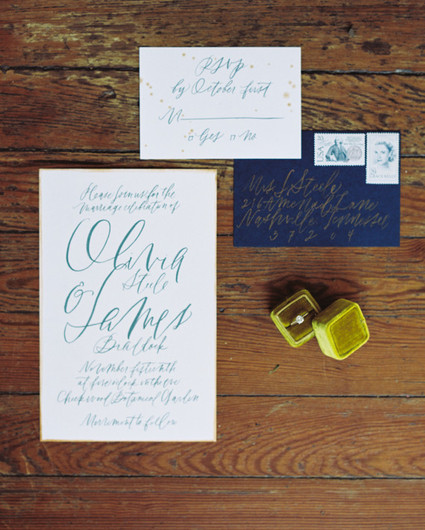 RSVP
by October first
M
Yes No
Mrs. L Steele
Lane
Nashville, Tennessee
3 7 2 0 4
Please join us for the
marriage celebration of
Olivia
Steele
&
James
November
at five o'clock in the eve
Cheekwood Botanical Gardens
Merriment to follow